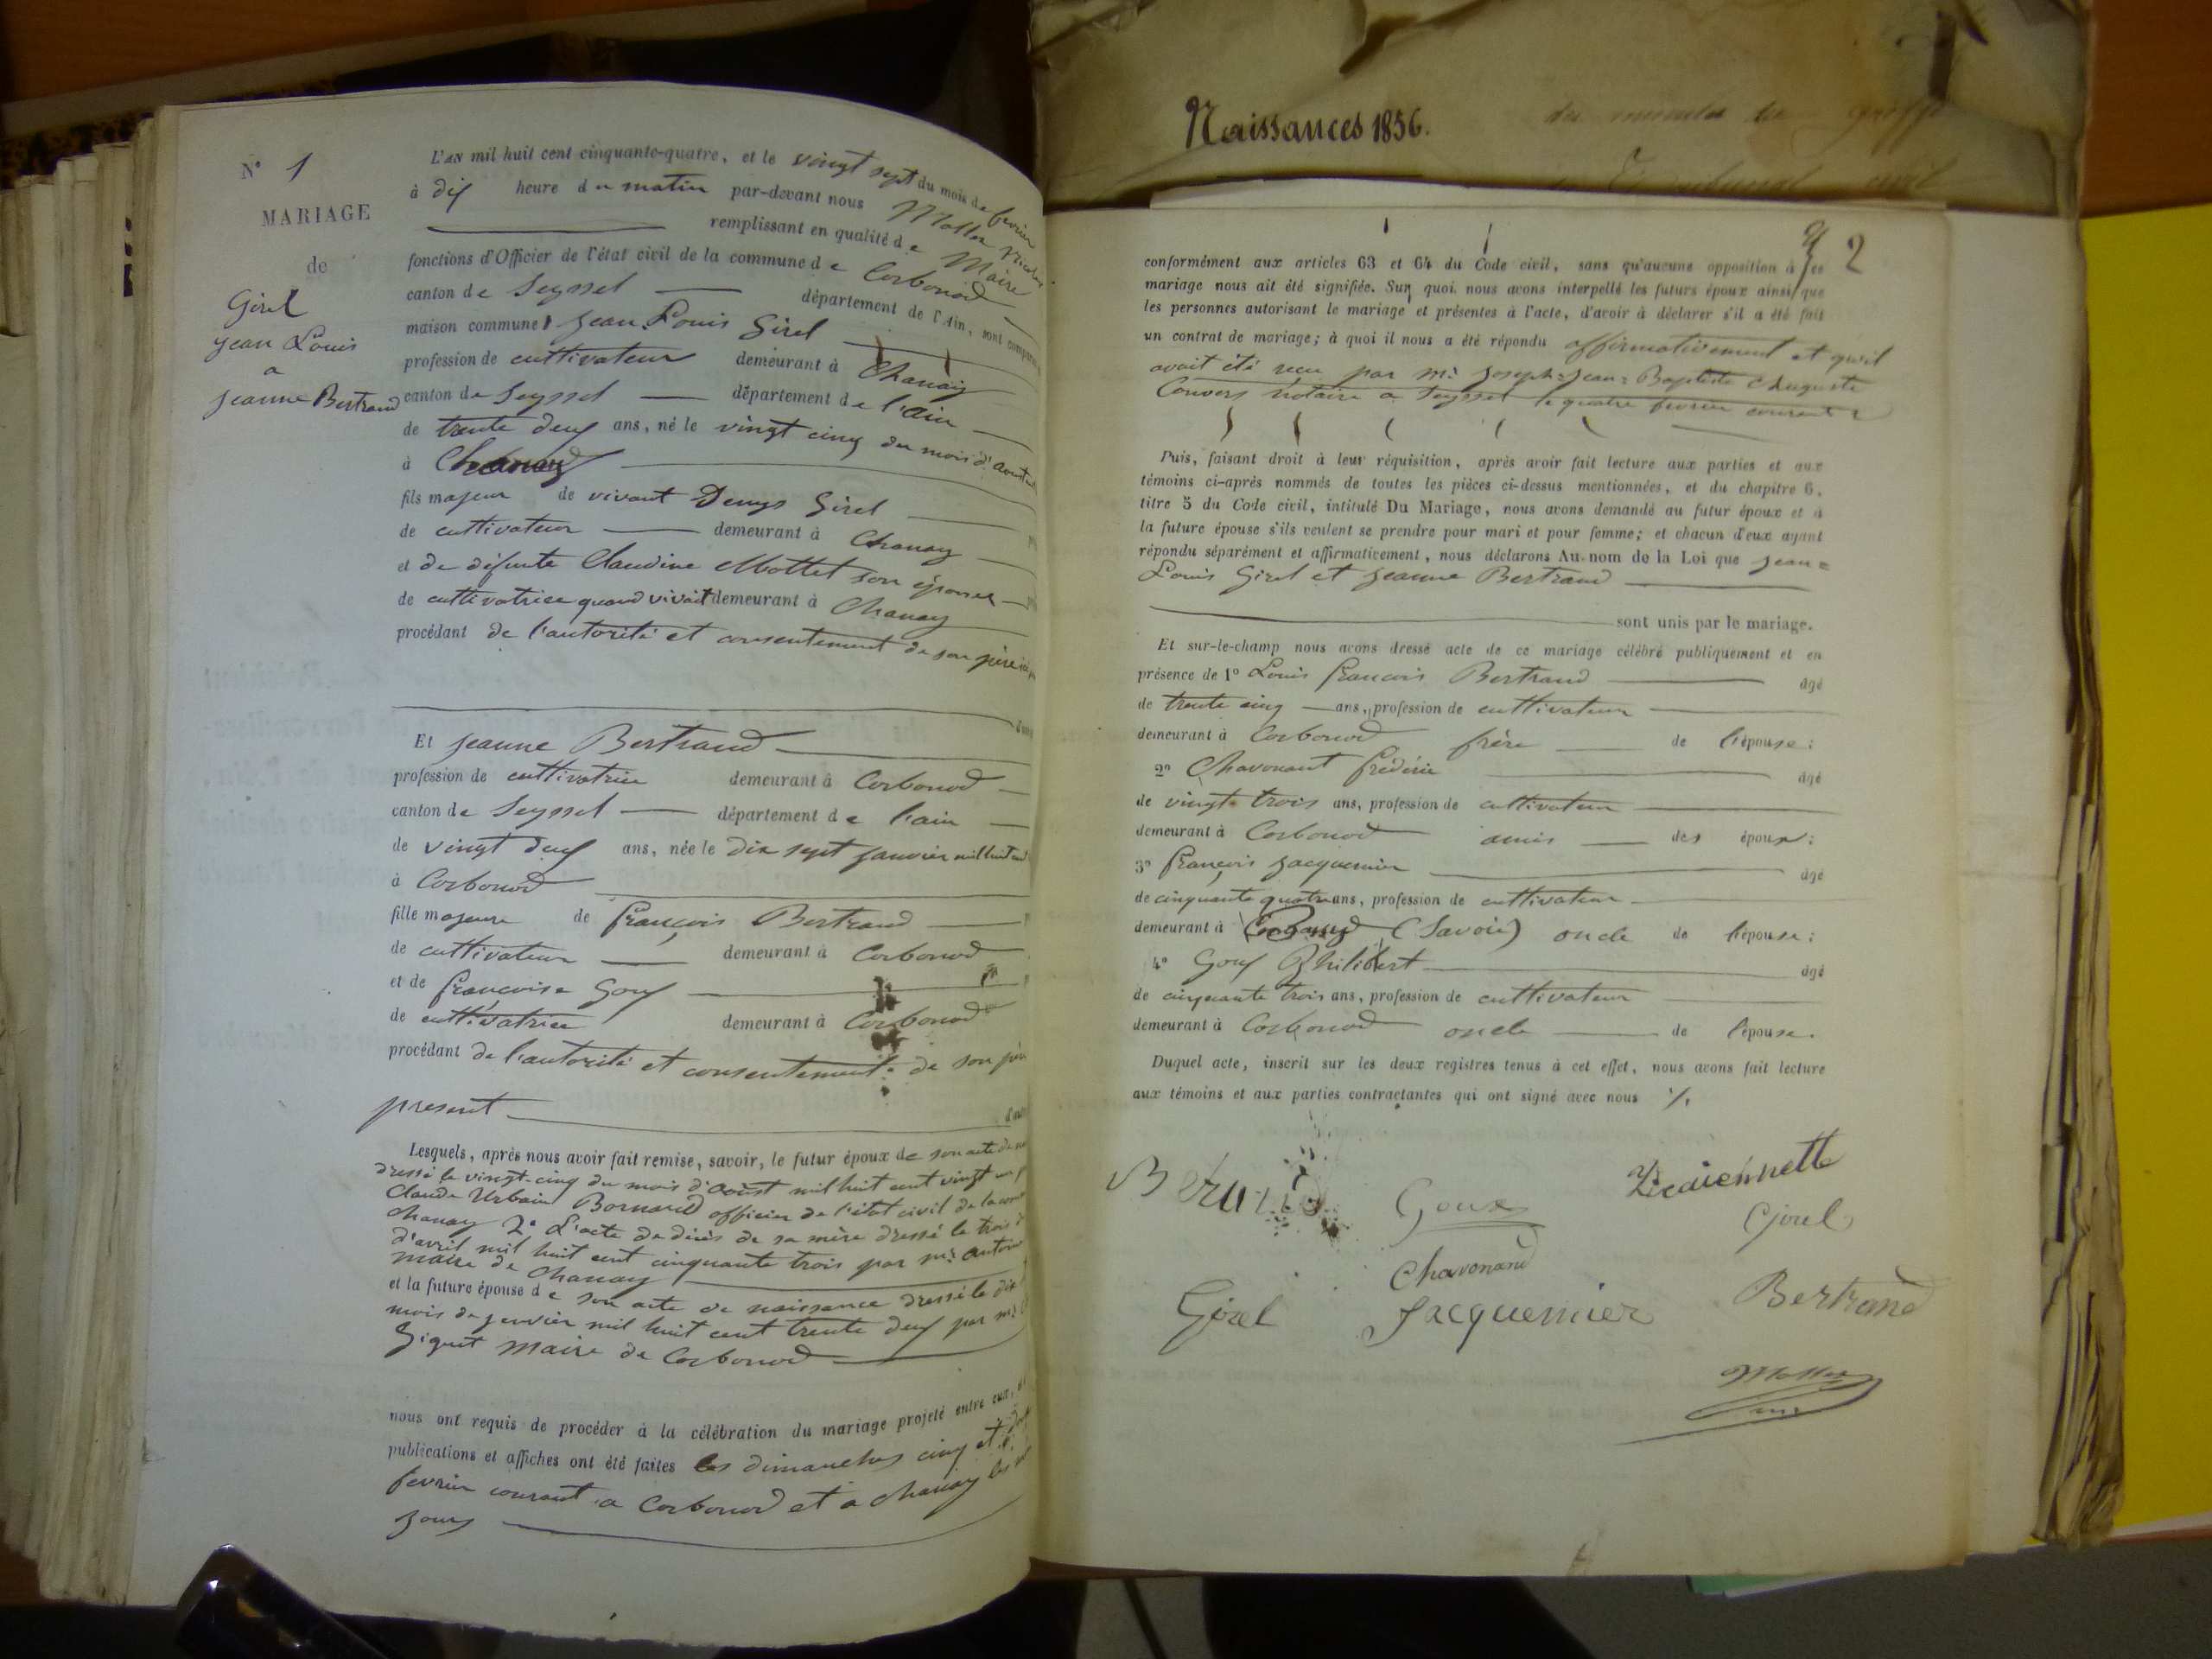 N° 1
MARIAGE
de
Girel
Jean Louis
a
Jeanne Bertrand
L'AN mil huit cent cinquante-quatre, et le vingt sept du mois de fevrier
à dix heure du matin par-devant nous Mollex Nicolas
remplissant en qualité de Maire
fonctions d'Officier de l'état civil de la commune de Corbonod
canton de Seyssel département de l'Ain, sont comparus
maison commune, Jean Louis Girel
profession de cultivateur demeurant à Chanay
canton de Seyssel département de l'ain
de trente deux ans, né le vingt cinq du mois d'aout
à Chanay
fils majeur de vivant Denys Girel
de cultivateur demeurant à Chanay
et de défunte Claudine Mottet son épouse
de cultivatrice quand vivait demeurant à Chanay
procédant de l'autorité et consentement de son père
Et Jeanne Bertrand
profession de cultivatrice demeurant à Corbonod
canton de Seyssel département de l'ain
de vingt deux ans, née le dix sept janvier mil huit cent
à Corbonod
fille majeure de françois Bertrand
de cultivateur demeurant à Corbonod
et de françoise Goux
de cultivatrice demeurant à Corbonod
procédant de l'autorité et consentement de son père
present
Lesquels, après nous avoir fait remise, savoir, le futur époux de son acte de
dressé le vingt-cinq du mois d'Août mil huit cent vingt un
Claude Urbain Bornard officier de l'état civil de la
Chanay 2° L'acte de décès de sa mère dressé le trois
d'avril mil huit cent cinquante trois par mr. Antoine
maire de Chanay
et la future épouse de son acte de naissance dressé le dix
mois de janvier mil huit cent trente deux par mr.
Giguet maire de Corbonod
nous ont requis de procéder à la célébration du mariage projeté entre eux,
publications et affiches ont été faites les dimanches cinq et
fevrier courant a Corbonod et a Chanay les
jours
Naissances 1856.
des minutes du greffe
Tribunal civil
2
conformément aux articles 63 et 64 du Code civil, sans qu'aucune opposition à ce
mariage nous ait été signifiée. Sur quoi nous avons interpellé les futurs époux ainsi que
les personnes autorisant le mariage et présentes à l'acte, d'avoir à déclarer s'il a été fait
un contrat de mariage; à quoi il nous a été répondu affirmativement et qu'il
avait été reçu par mr. Joseph=Jean=Baptiste Auguste
Convers notaire a Seyssel le quatre fevrier courant
Puis, faisant droit à leur réquisition, après avoir fait lecture aux parties et aux
témoins ci-après nommés de toutes les pièces ci-dessus mentionnées, et du chapitre 6,
titre 5 du Code civil, intitulé Du Mariage, nous avons demandé au futur époux et à
la future épouse s'ils veulent se prendre pour mari et pour femme; et chacun d'eux ayant
répondu séparément et affirmativement, nous déclarons Au nom de la Loi que Jean=
Louis Girel et Jeanne Bertrand
sont unis par le mariage.
Et sur-le-champ nous avons dressé acte de ce mariage célébré publiquement et en
présence de 1° Louis françois Bertrand âgé
de trente cinq ans, profession de cultivateur
demeurant à Corbonod frère de l'épouse;
2° Chavonant frédéric âgé
de vingt-trois ans, profession de cultivateur
demeurant à Corbonod amis des époux;
3° françois Jacquemier âgé
de cinquante quatre ans, profession de cultivateur
demeurant à (Savoie) oncle de l'épouse;
4° Goux Philibert âgé
de cinquante trois ans, profession de cultivateur
demeurant à Corbonod oncle de l'épouse.
Duquel acte, inscrit sur les deux registres tenus à cet effet, nous avons fait lecture
aux témoins et aux parties contractantes qui ont signé avec nous
Goux
Girel
Chavonand
Girel Jacquemier Bertrand